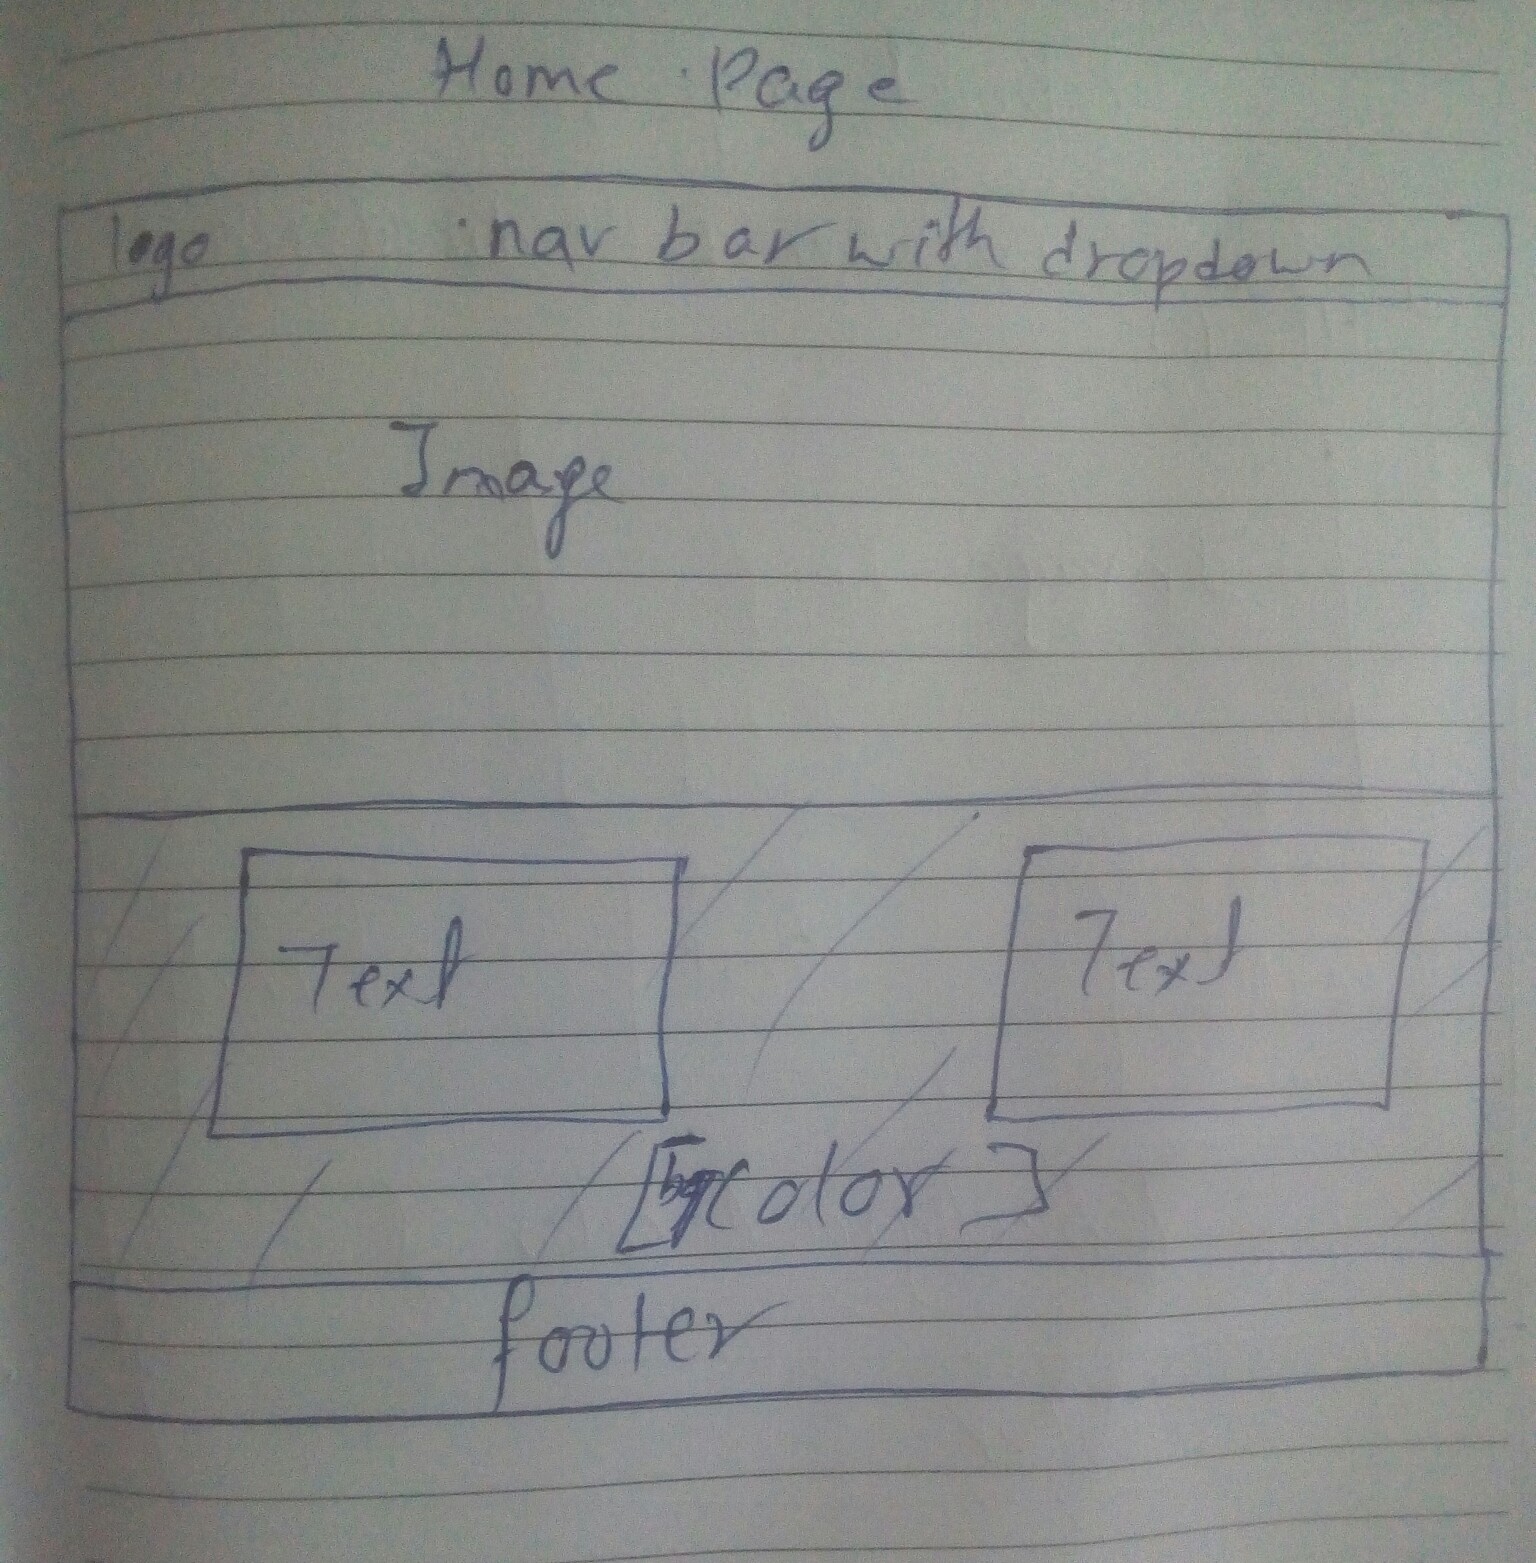 Home Page
logo nav bar with dropdown
Image
Text Text
[bgcolor]
footer